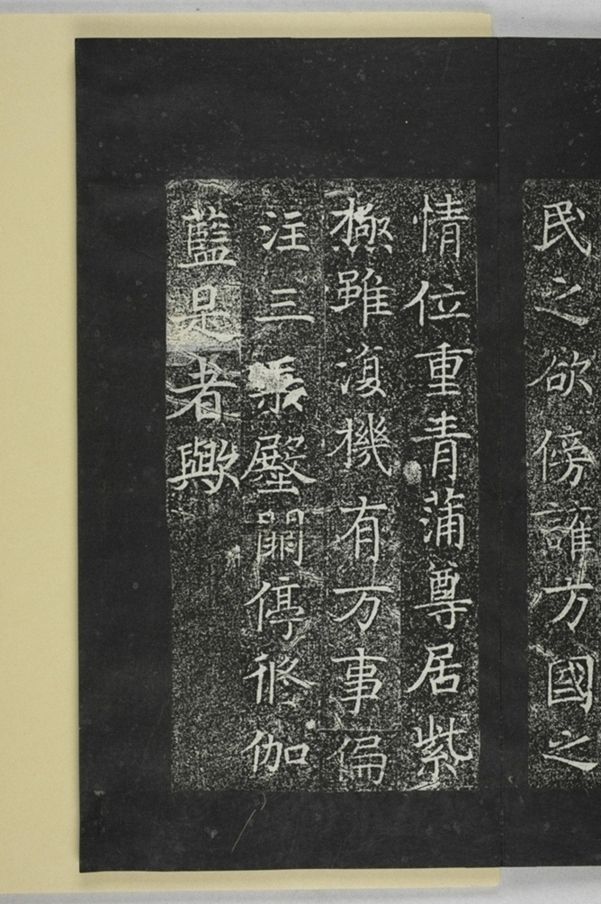 民之欲傍誰方國之
情位重青蒲尊居紫
極雖復機有万事偏
注三壂停修伽
藍是者歟